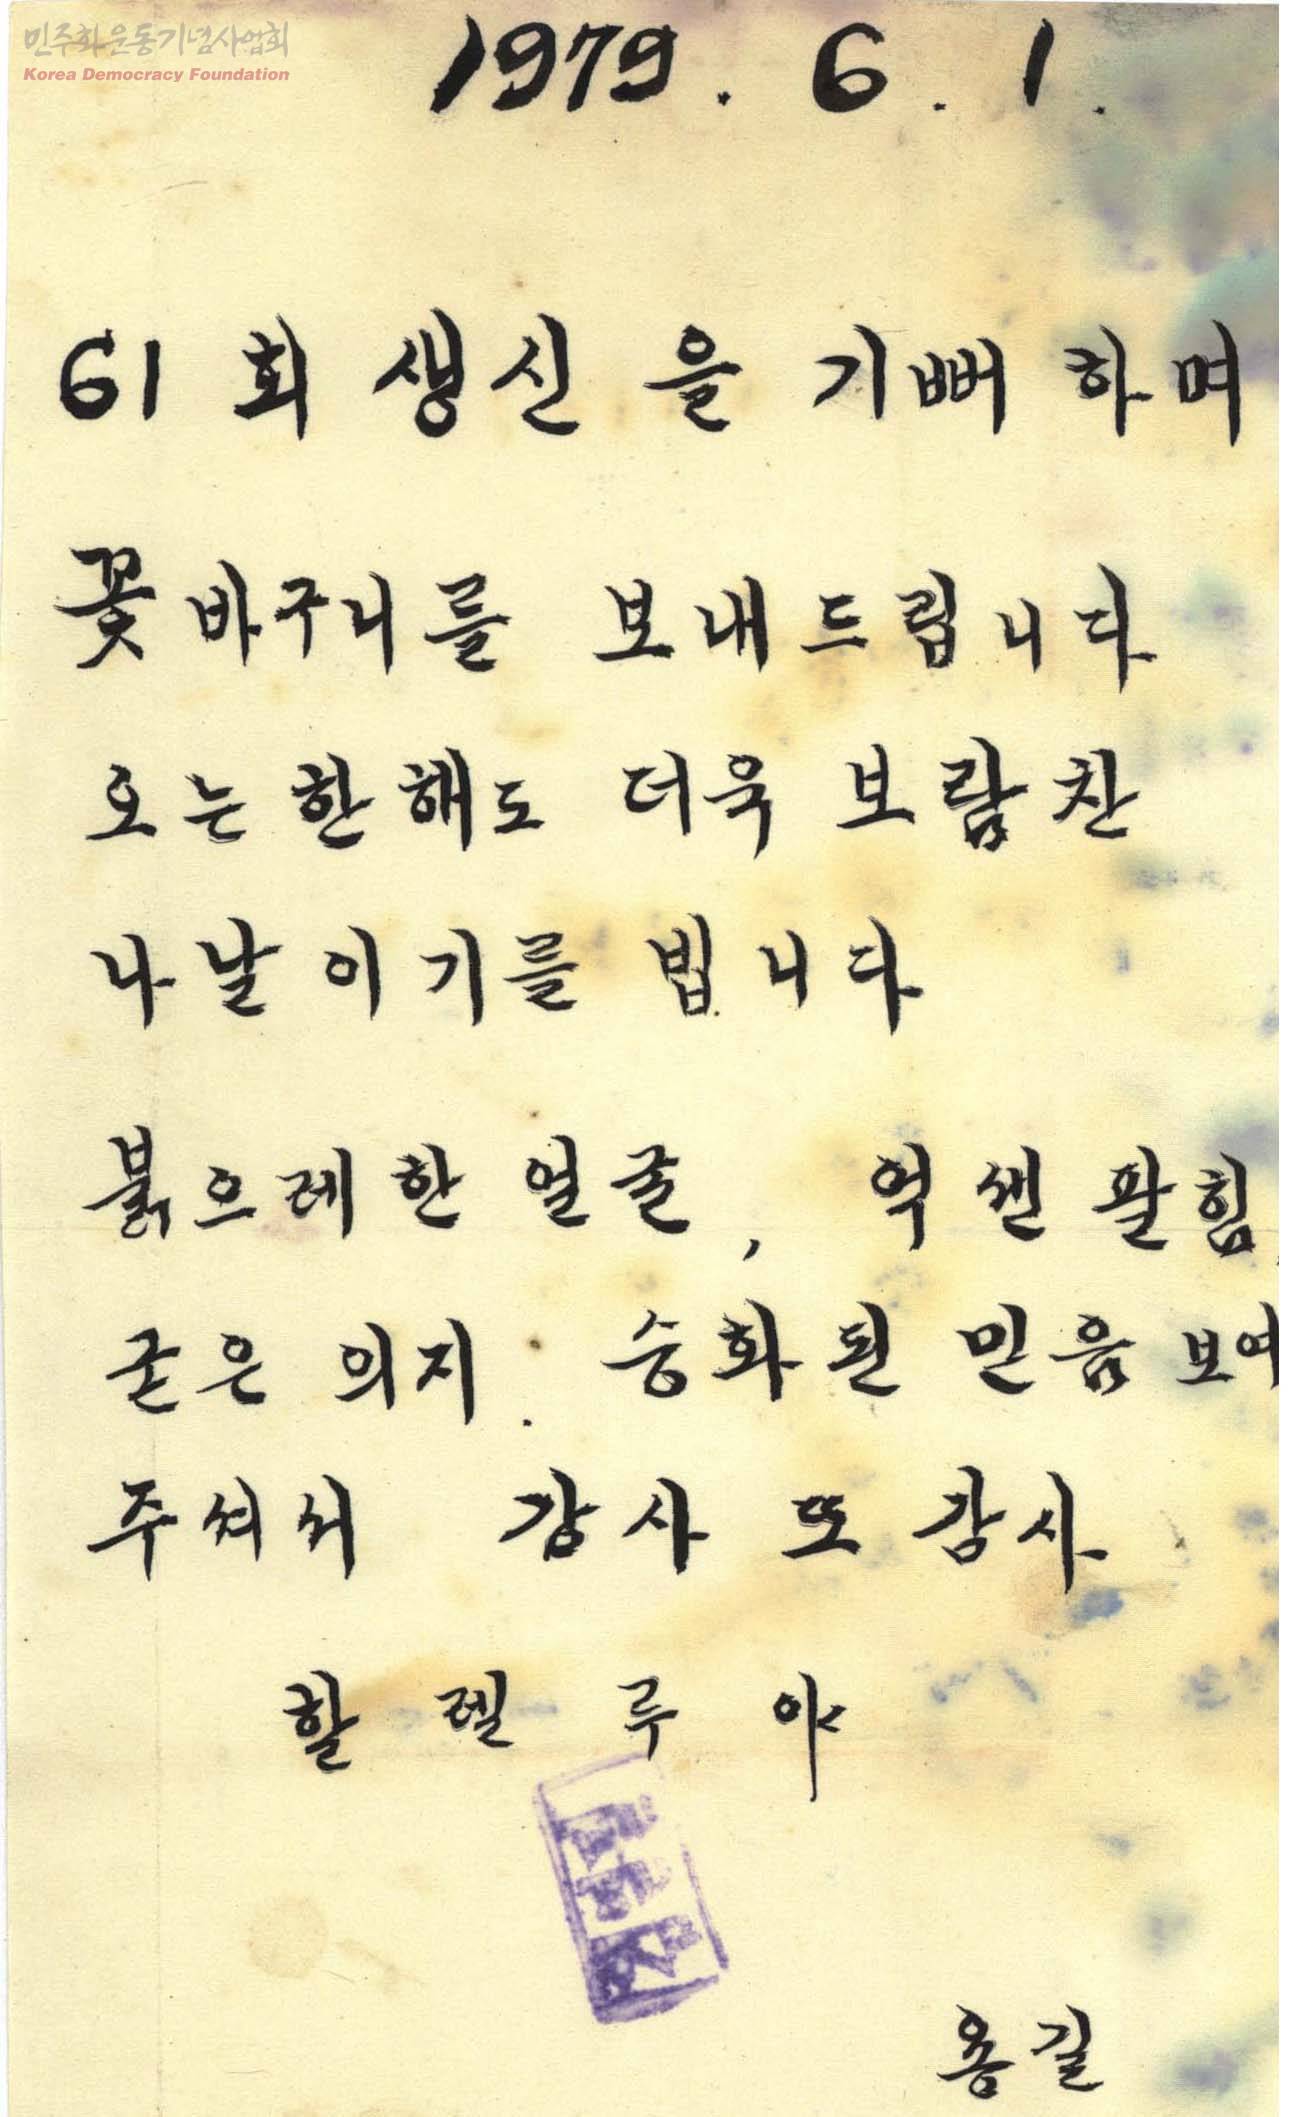 민주화운동기념사업회
Korea Democracy Foundation
1979. 6. 1.
61회 생신을 기뻐하며
꽃바구니를 보내드립니다
오는 한해도 더욱 보람찬
나날이기를 빕니다
붉으레한 얼굴, 억센 팔힘,
굳은 의지. 승화된 믿음 보여
주셔서 감사 또 감사
할렐루야
용길